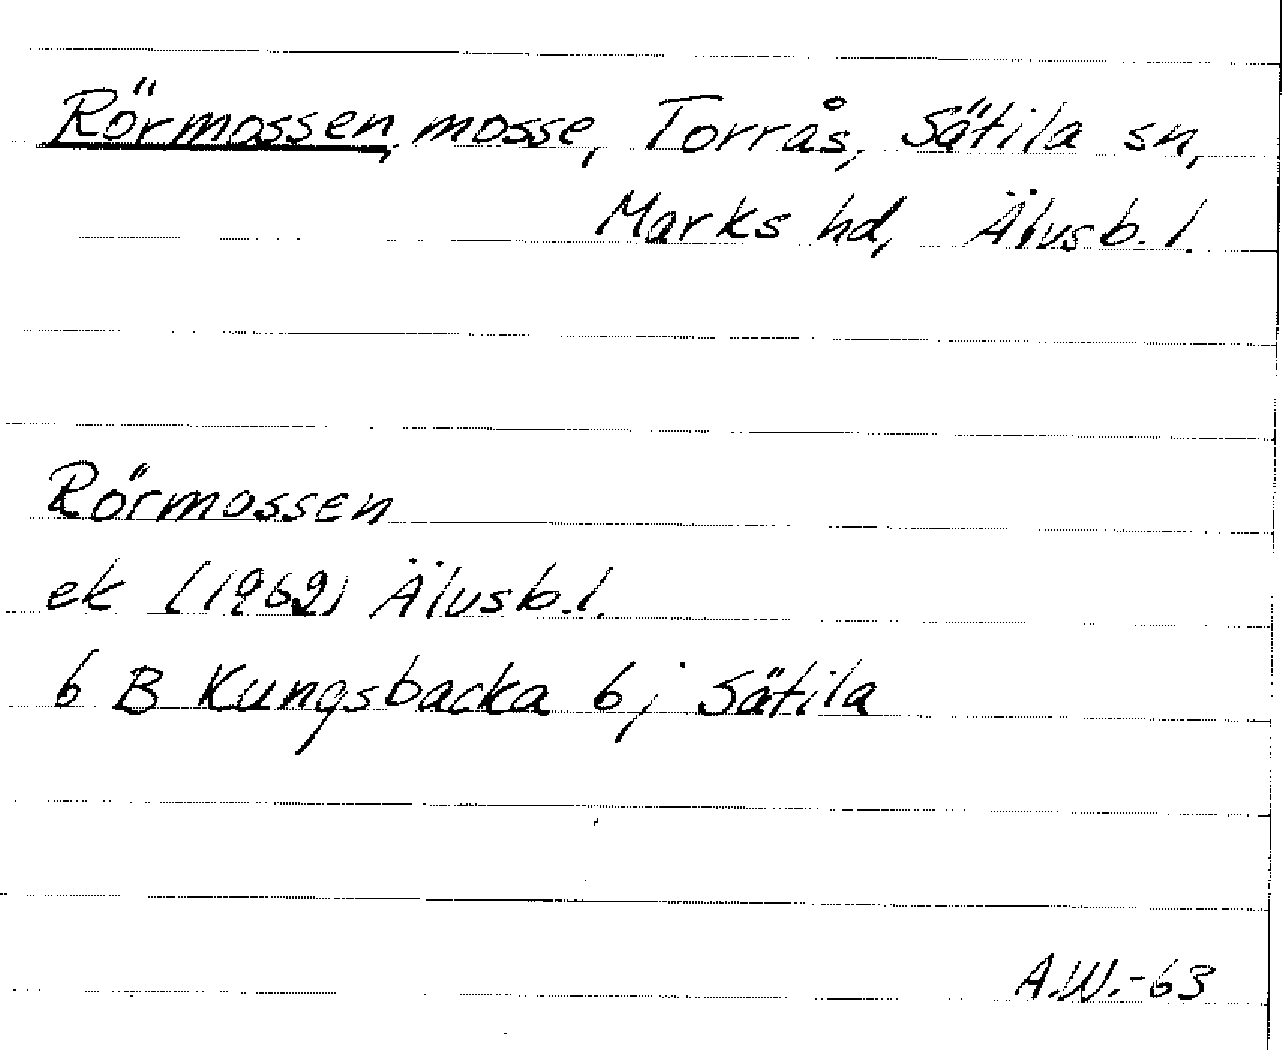 Rörmossen, mosse, Torrås, Sätila sn,
Marks hd, Älvsb. l.
Rörmossen
ek (1962) Älvsb. l.
6 B Kungsbacka 6j Sätila
A.W.-63